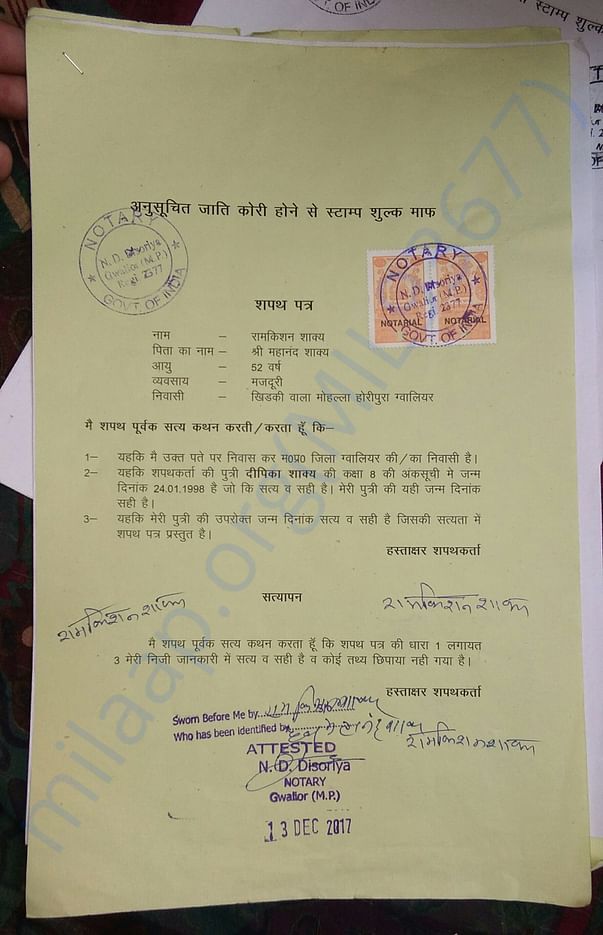 अनुसूचित जाति कोरी होने से स्टाम्प शुल्क माफ
NOTARY
N. D. Disoriya
Gwalior (M.P.)
Regi 2377
GOVT. OF INDIA
NOTARY
N. D. Disoriya
Gwalior (M.P.)
Regi 2377
GOVT. OF INDIA
NOTARIAL NOTARIAL
शपथ पत्र
नाम – रामकिशन शाक्य
पिता का नाम – श्री महानंद शाक्य
आयु – 52 वर्ष
व्यवसाय – मजदूरी
निवासी – खिडकी वाला मोहल्ला होरीपुरा ग्वालियर
मै शपथ पूर्वक सत्य कथन करती/करता हूँ कि–
1– यहकि मै उक्त पते पर निवास कर म0प्र0 जिला ग्वालियर की/का निवासी है।
2– यहकि शपथकर्ता की पुत्री दीपिका शाक्य की कक्षा 8 की अंकसूची मे जन्म
दिनांक 24.01.1998 है जो कि सत्य व सही है। मेरी पुत्री की यही जन्म दिनांक
सही है।
3– यहकि मेरी पुत्री की उपरोक्त जन्म दिनांक सत्य व सही है जिसकी सत्यता में
शपथ पत्र प्रस्तुत है।
हस्ताक्षर शपथकर्ता
सत्यापन
रामकिशन शाक्य
रामकिशन शाक्य
मै शपथ पूर्वक सत्य कथन करता हूँ कि शपथ पत्र की धारा 1 लगायत
3 मेरी निजी जानकारी में सत्य व सही है व कोई तथ्य छिपाया नही गया है।
हस्ताक्षर शपथकर्ता
Sworn Before Me by
Who has been identified by
रामकिशन शाक्य
ATTESTED
N. D. Disoriya
NOTARY
Gwalior (M.P.)
13 DEC 2017
milaap.org(MIL
2677)
OF IND
स्टाम्प शुल्क